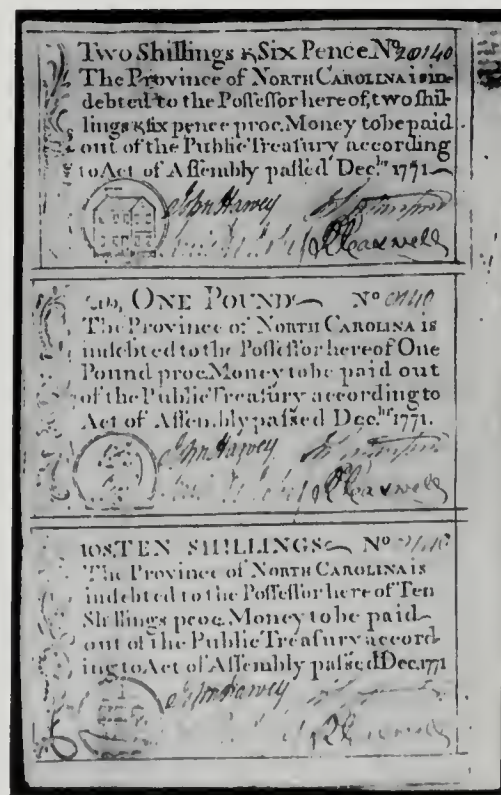 Two Shillings & Six Pence. No 20140
The Province of NORTH CAROLINA is in-
debted to the Poſſeſſor hereof, two ſhil-
lings & ſix pence proc. Money to be paid
out of the Public Treaſury according
to Act of Aſſembly paſſed Decbr. 1771
John Harvey
RCaswell
ONE POUND No
The Province of NORTH CAROLINA is
indebted to the Poſſeſſor hereof One
Pound proc. Money to be paid out
of the Public Treaſury according to
Act of Aſſembly paſsed Decbr. 1771.
John Harvey
RCaswell
10S. TEN SHILLINGS No
The Province of NORTH CAROLINA is
indebted to the Poſſeſſor here of Ten
Shillings proc. Money to be paid
out of the Public Treaſury accord-
ing to Act of Aſſembly paſsed Dec. 1771
John Harvey
RCaswell